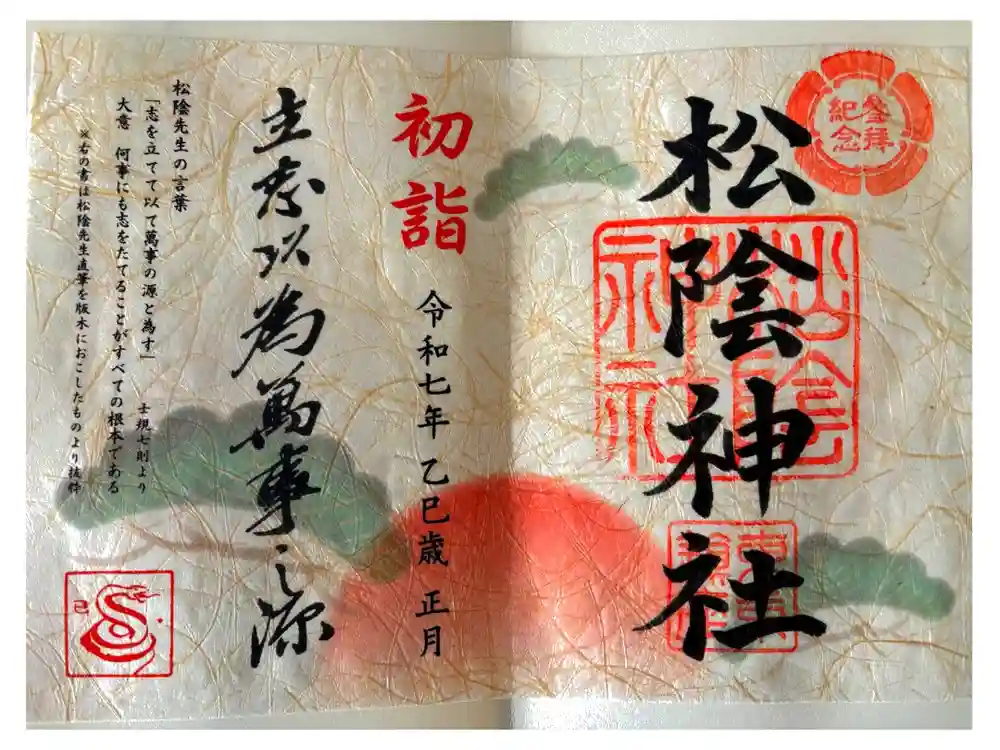 参拝
紀念
松陰神社
松陰
神社
初詣
令和七年 乙巳歳 正月
立志以為萬事之源
松陰先生の言葉
「志を立てて以て萬事の源と為す」 士規七則より
大意 何事にも志をたてることがすべての根本である
※右の書は松陰先生直筆を版木におこしたものより抜粋
巳